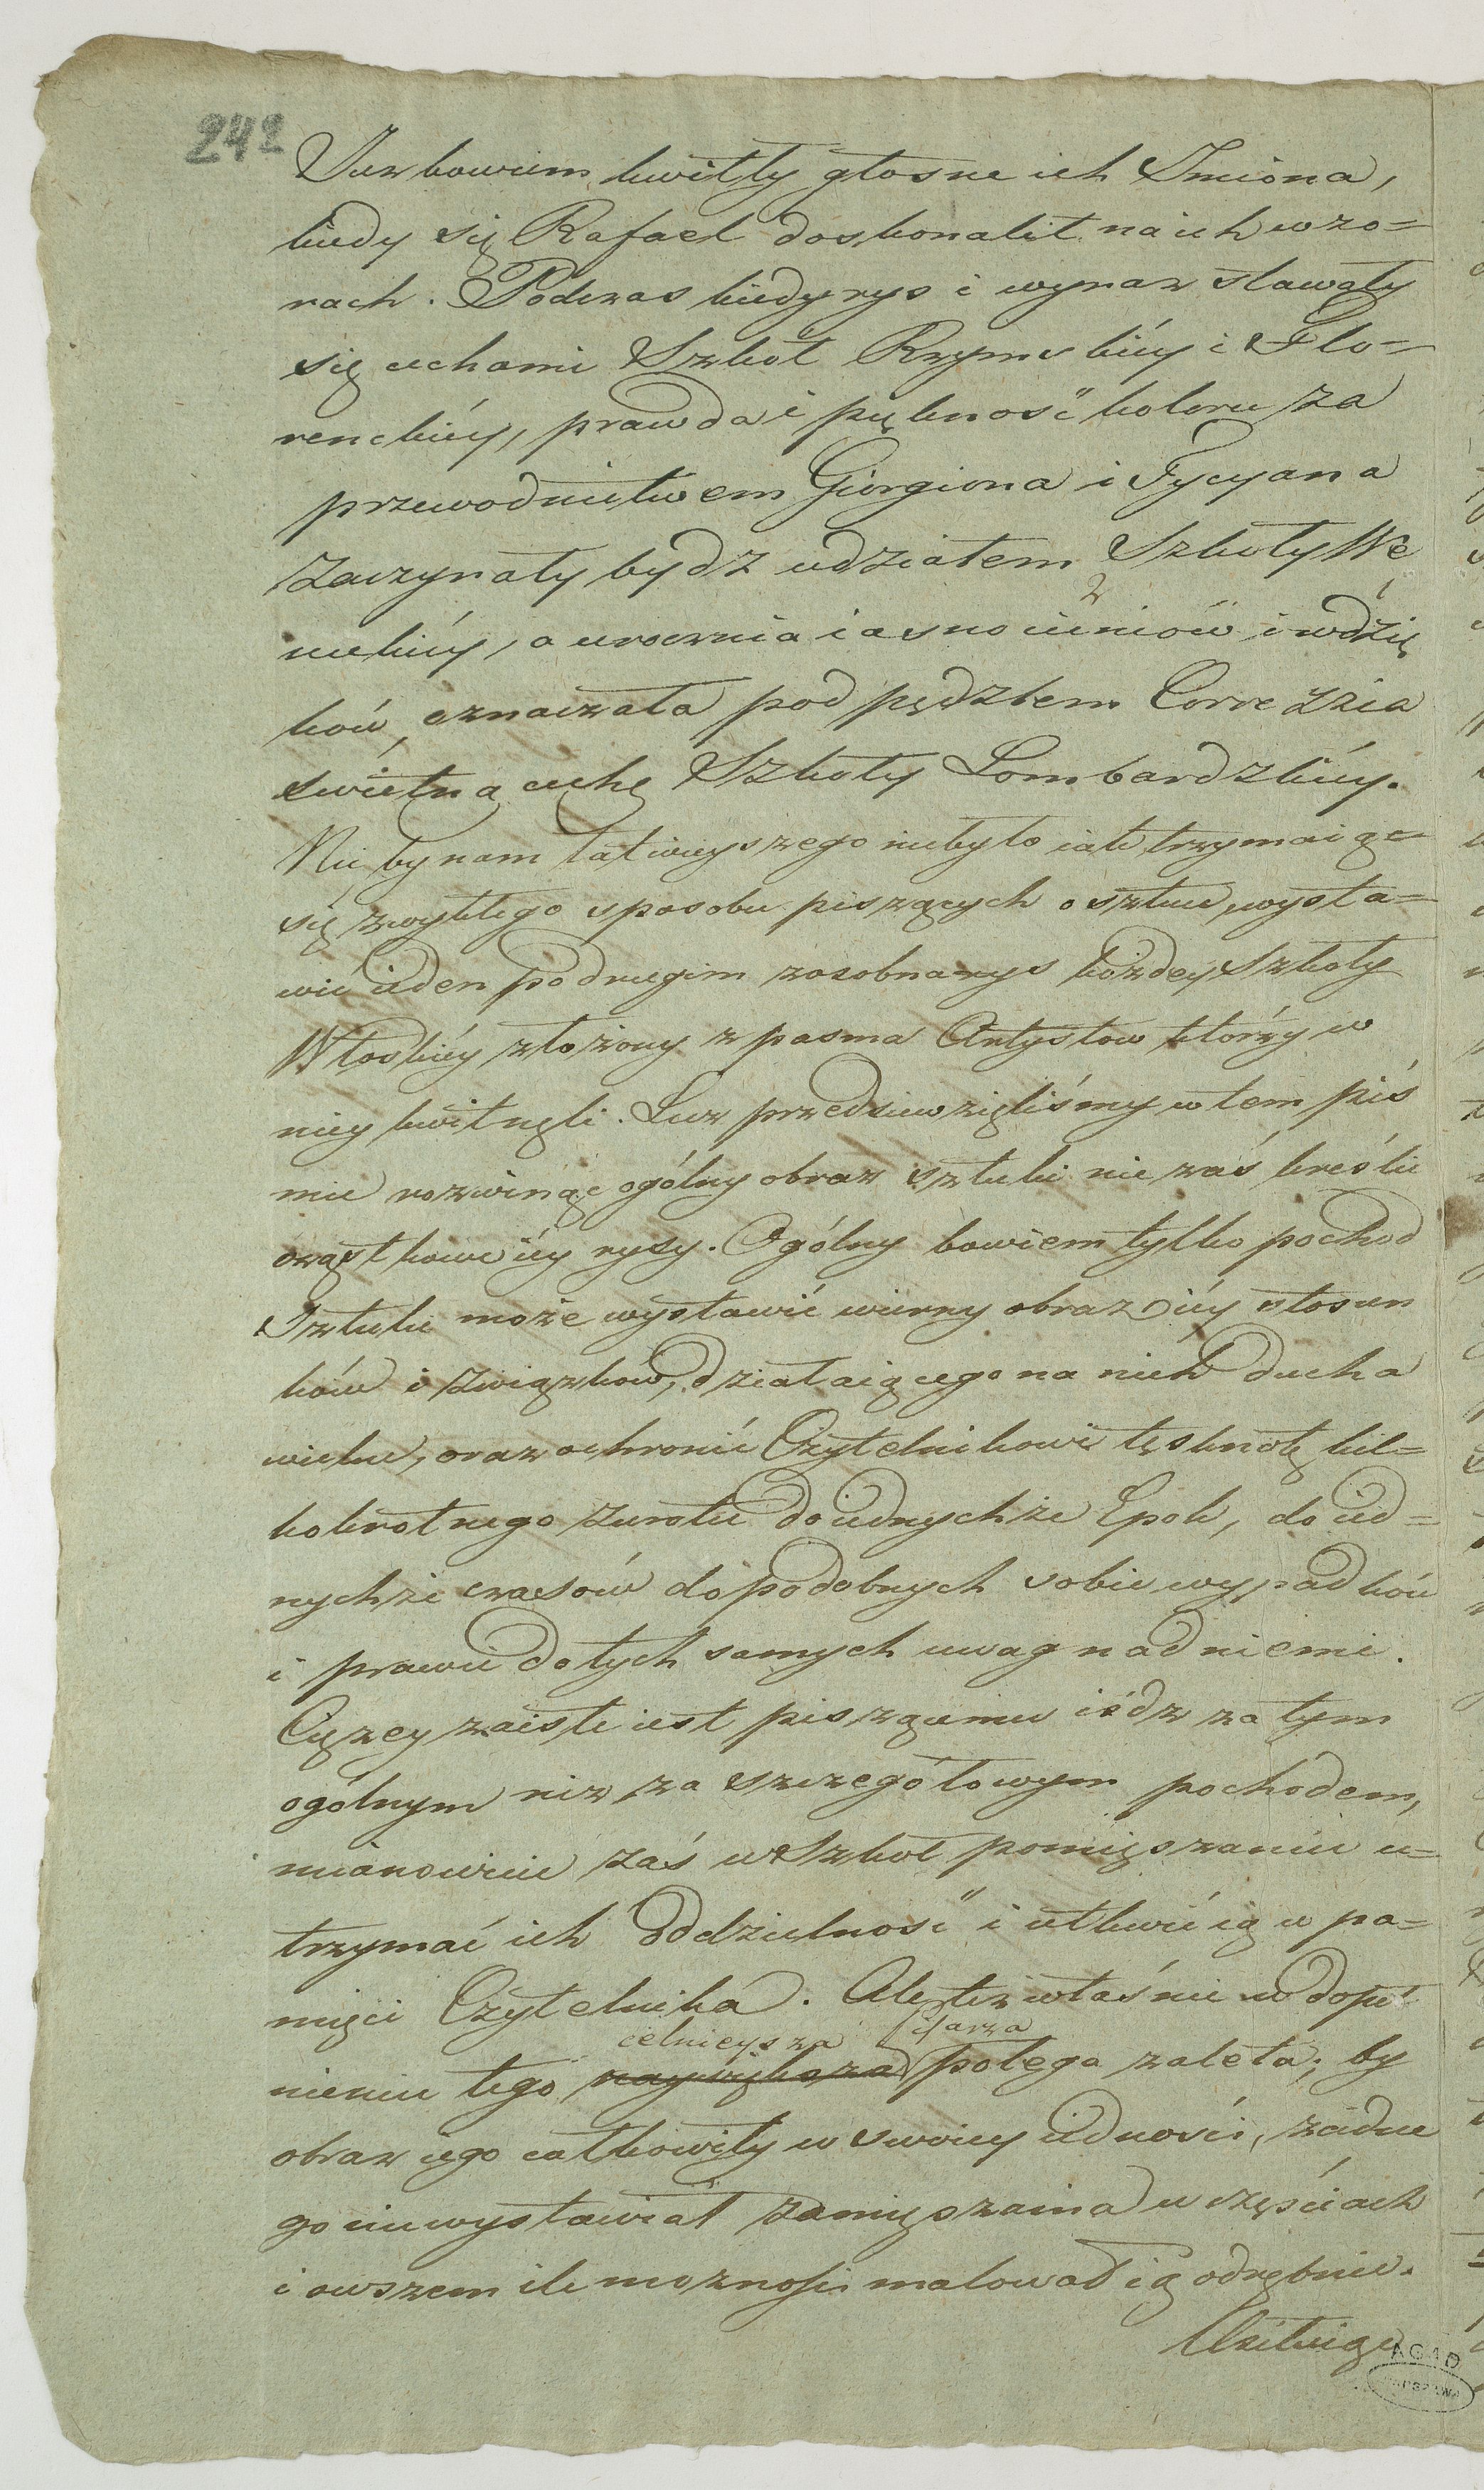 242
Już bowiem kwitły głosne ich Imiona,
kiedy się Rafael doskonalił na ich wzo=
rach. Podczas kiedy rys i wyraz stawały
się cechami Szkół Rzymskiéy i Flo=
renckiéy, prawda i piękność koloru za
przewodnictwem Giorgiona i Tycyana
zaczynały bydź udziałem Szkoły We
neckiéy, a urocznia iasnocieniów i wdzię
2
ków, oznaczała pod pędzlem Corredzia
świetną cechę Szkoły Lombardzkiéy.
Nic by nam łatwieyszego niebyło iak trzymaiąc
się zwykłego sposobu piszących o sztuce, wysta=
wić ieden po drugim zosobna rys każdey Szkoły
Włoskiéy złożony z pasma Artystow którzy w
niey kwitnęli. Lecz przedsiewzięliśmy w tem piś
mie rozwinąć ogólny obraz sztuki nie zaś kreślić
cząstkowe iéy rysy. Ogólny bowiem tylko pochod
Sztuki może wystawić wierny obraz iéy stosun
ków i związków, działaiącego na nich ducha
wieku, oraz ochronić Czytelnikowi tęsknotę kil=
kokrotnego zwrotu do iednychże Epok, do ied=
nychże czasów do podobnych sobie wypadków
i prawie do tych samych uwag nad niemi.
Ciężey zaiste iest piszącemu iśdz za tym
ogólnym niż za szczegółowym pochodem,
mianowicie zaś w Szkół pomięszaniu u=
trzymać ich oddzielność i utkwić ią w pa=
mięci Czytelnika. Ale też właśnie w dopeł
celnieysza pisarza
nieniu tego naywiększa polega zaleta; by
obraz iego całkowity w swoiey iedności, żadne
go niewystawiał zamięszania w częściach
i owszem ile możnosci malował ią odrębnie.
AGAD
WARSZAWA